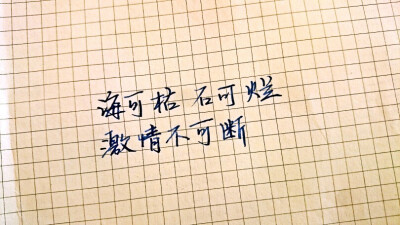 海可枯 石可烂
激情不可断